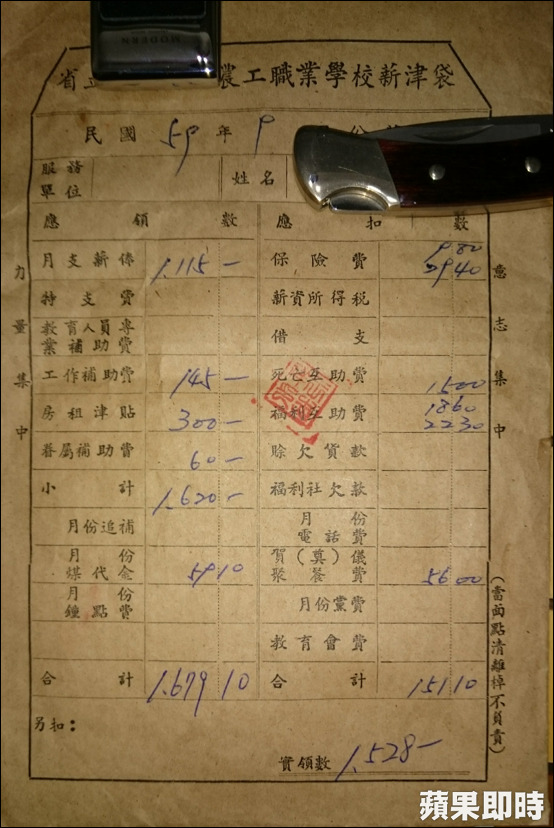 MODERN
省立 農工職業學校薪津袋
民國 59 年 9 月份
服務單位 姓名
應領數 應扣數
月支薪俸 1.115— 保險費 9 80
29 40
特支費 薪資所得税
教育人員專業補助費 借支
工作補助費 145— 死亡互助費 15 00
房租津貼 300— 福利互助費 18 60
22 30
眷屬補助費 60— 賒欠貨款
小計 1.620— 福利社欠款
月份追補 月份電話費
月份煤代金 59 10 賀(奠)儀聚餐費 56 00
月份鐘點費 月份黨費
教育會費
合計 1.679 10 合計 151 10
另扣：
實領數 1.528—
力量集中
意志集中
(當面點清離棹不負責)
蘋果即時